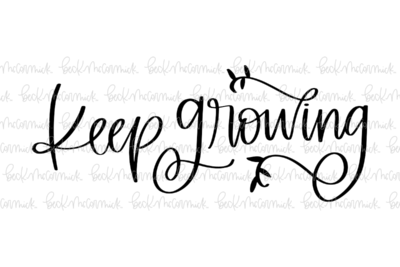 Keep growing